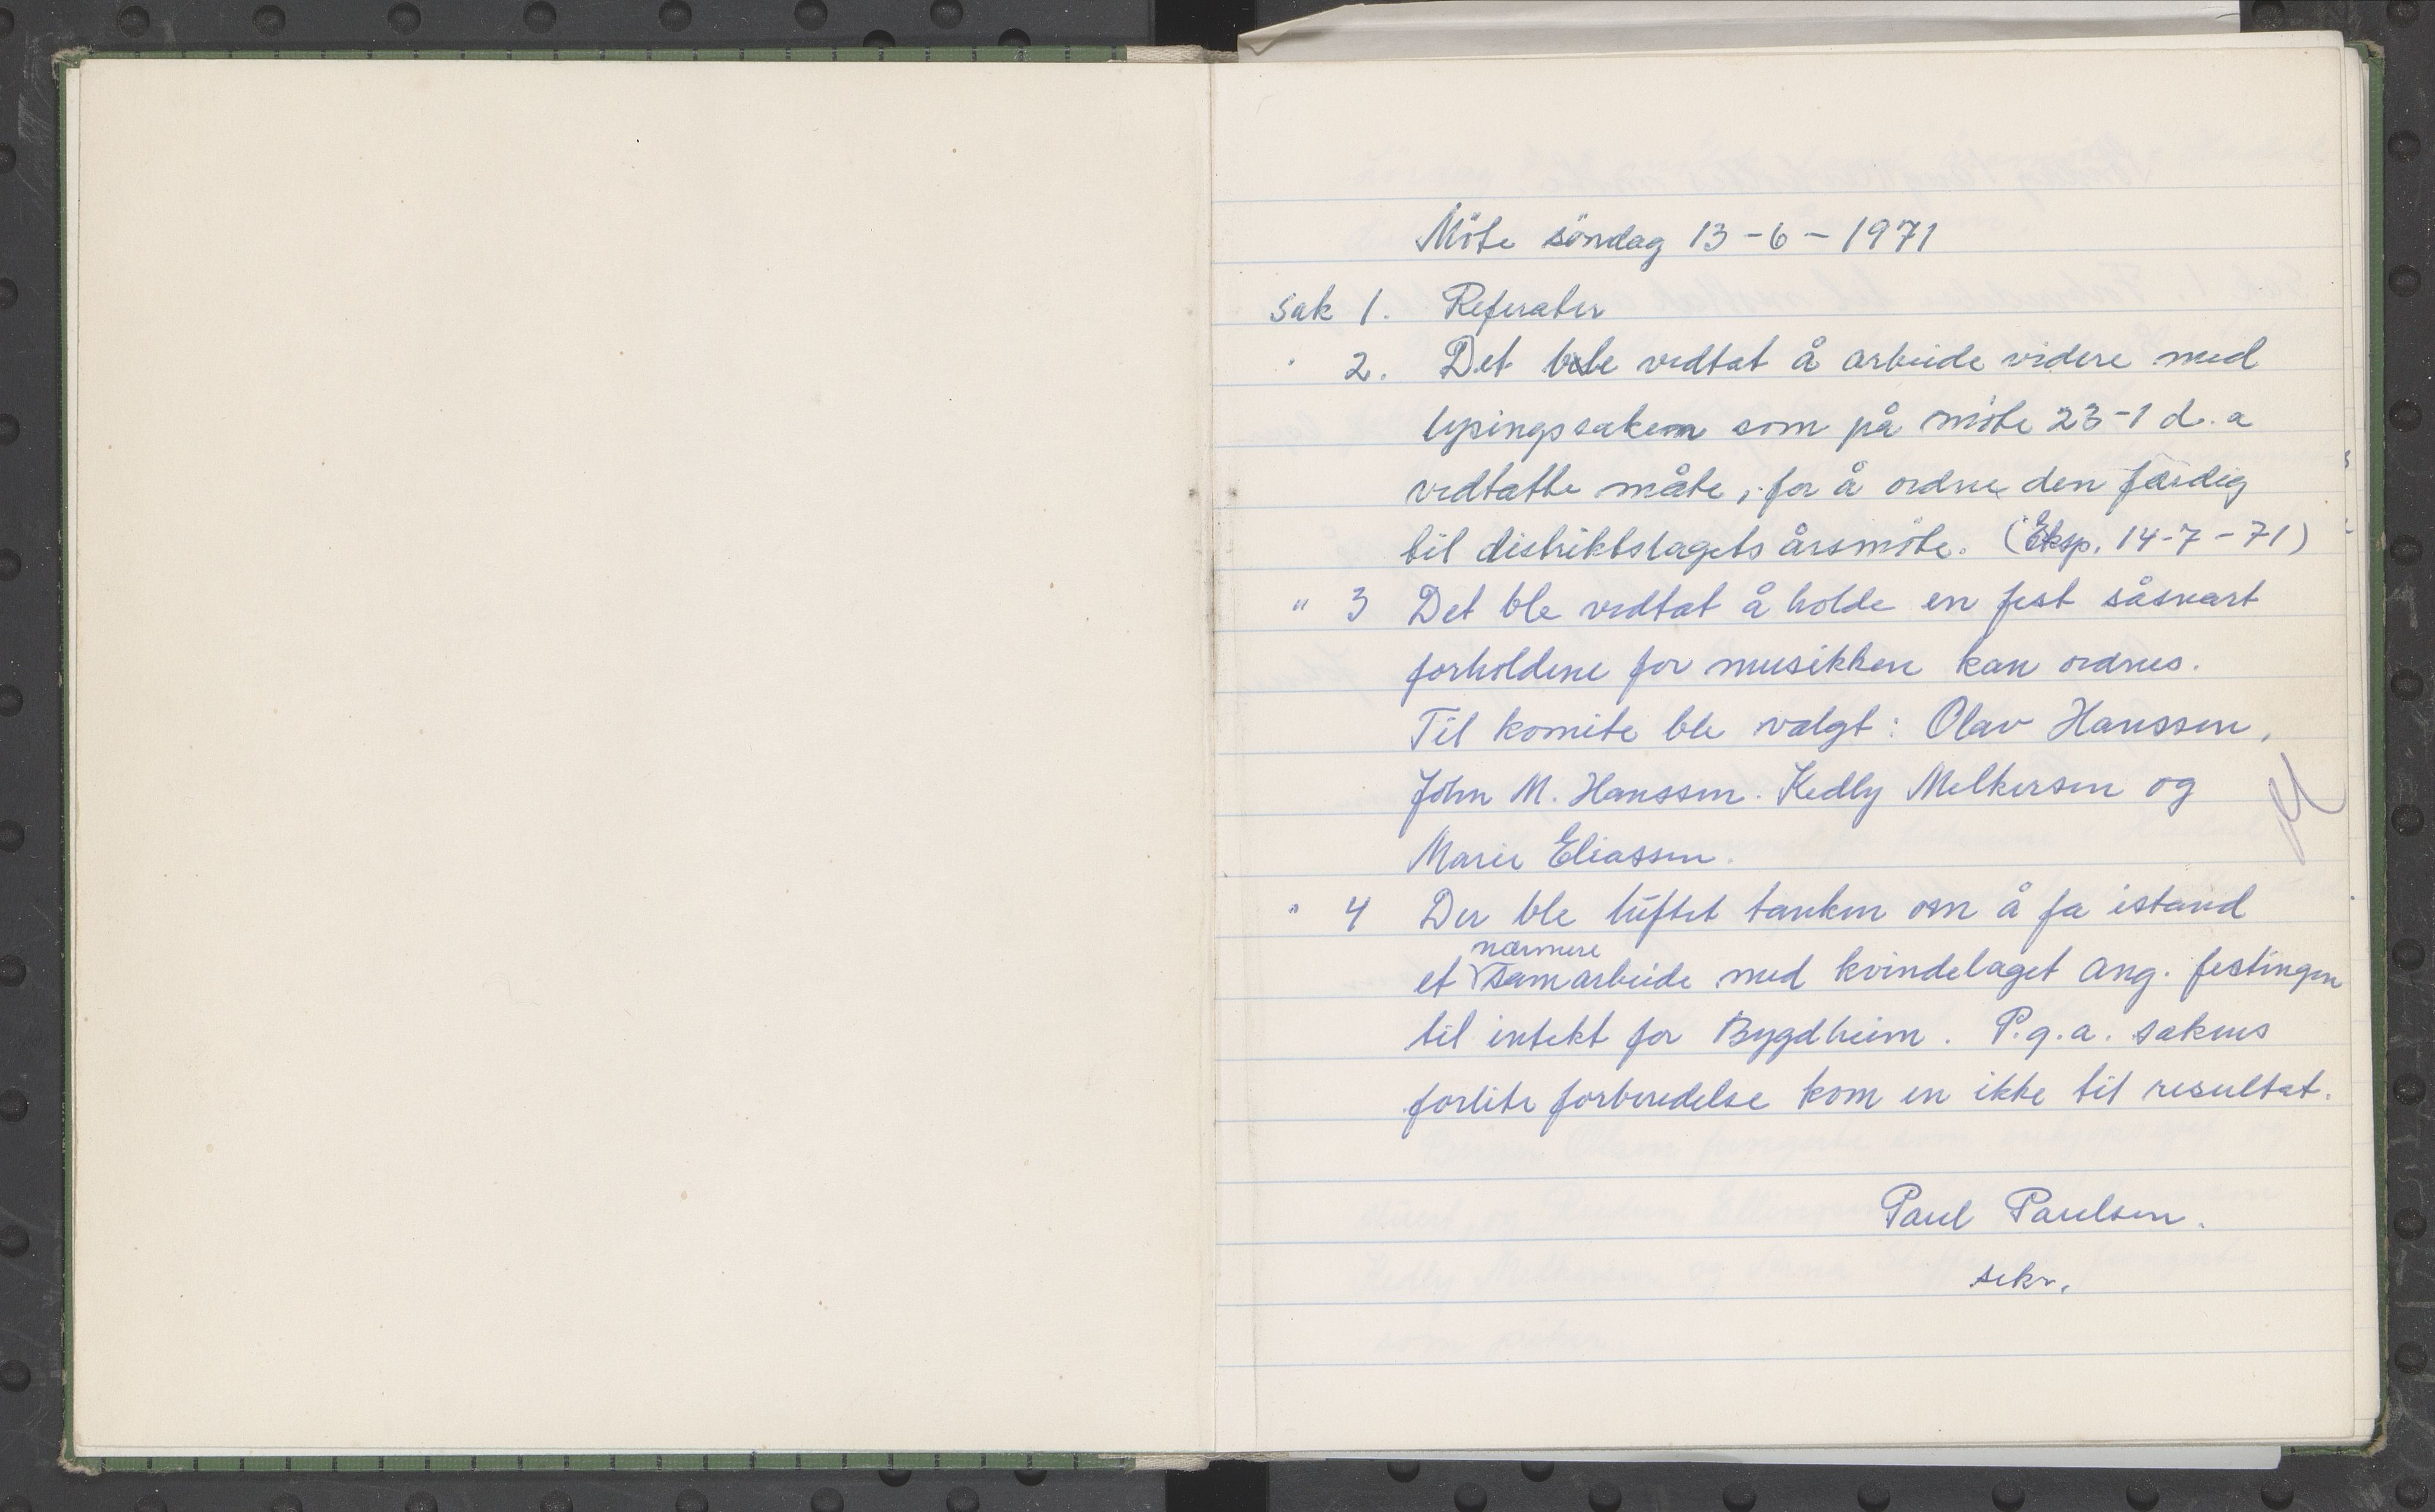 Möte söndag 13-6-1971
Sak 1. Referater
" 2. Det ble vedtat å arbeide videre med
lysingssaken som på möte 23-1 d.a
vedtatte måte, for å ordne den færdig
til distriktslagets årsmöte. (Eksp. 14-7-71)
" 3 Det ble vedtat å holde en fest såsnart
forholdene for musikken kan ordnes.
Til komite ble valgt: Olav Hanssen,
John M. Hanssen. Kedly Melkersen og
Marie Eliassen.
" 4 Der ble luftet tanken om å fa istand
et nærmere samarbeide med kvindelaget ang. festingen
til intekt for Bygdheim. P.g.a. sakens
forlite forberedelse kom en ikke til resultat.
Paul Paulsen.
sekr.